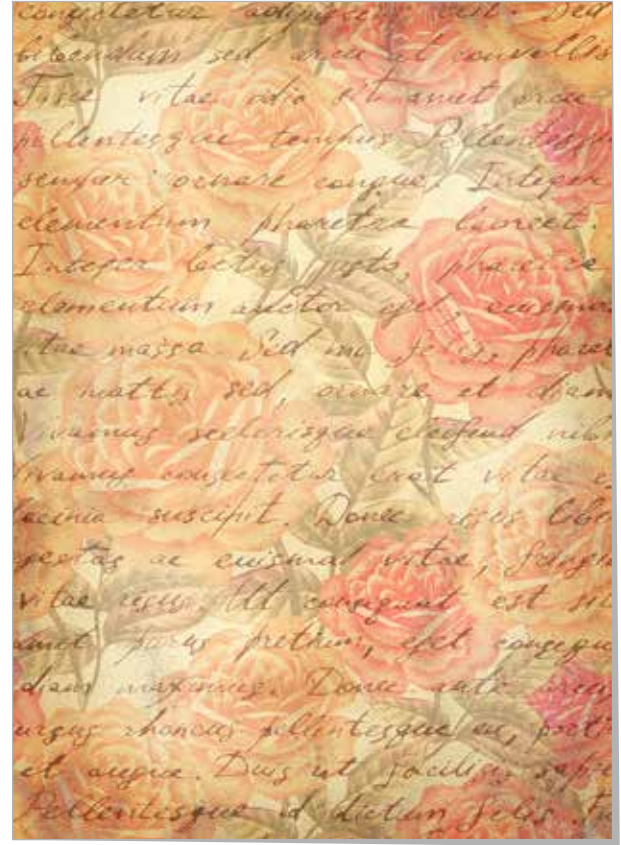 consectetur adipiscing est. Sed
bibendum sed arcu ut convallis
Fusce vitae odio sit amet arcu
pellentesque tempus Pellentesque
semper ornare congue. Integer
elementum pharetra laoreet.
Integer lectus justo, pharetra
elementum auctor eget, euismod
vitae massa. Sed mi felis, pharet
ac mattis sed, ornare et diam
Vivamus scelerisque eleifend nibh
Vivamus consectetur erat vitae
lacinia suscipit. Donec risus libe
egestas ac euismod vitae, fringi
vitae risus. Ut consequat est sit
amet purus pretium, eget consequ
diam maximus. Donec ante arcu
ursus rhoncus pellentesque eu, port
et augue. Duis ut facilisis sapie
Pellentesque id dictum felis. In